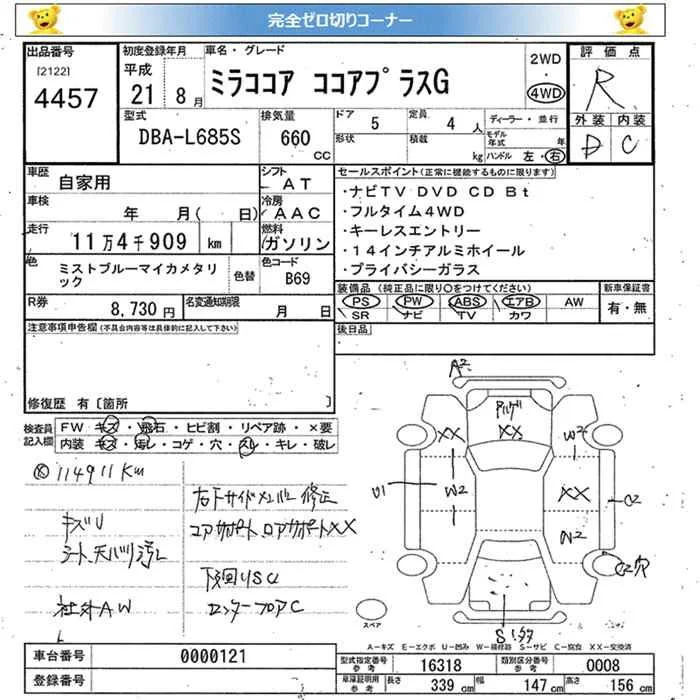 完全ゼロ切りコーナー
出品番号
[2122]
4457
初度登録年月
平成
21
8 月
車名・グレード
ミラココア ココアプラスG
2WD
・
4WD
評価点
R
外装 内装
D C
型式
DBA-L685S
排気量
660
CC
ドア 5
定員 4 人
形状
積載
kg
ディーラー・並行
モデル年式 年
ハンドル 左・右
車歴
自家用
シフト
AT
車検
年 月( 日)
冷房
AAC
走行
11万4千909 km
燃料
ガソリン
色
ミストブルーマイカメタリック
色替
色コード
B69
R券
8,730 円
名変通知期限
月 日
セールスポイント(正常に機能するものに限ります)
・ナビTV DVD CD Bt
・フルタイム4WD
・キーレスエントリー
・14インチアルミホイール
・プライバシーガラス
装備品 (純正品に限り○をつけてください)
PS PW ABS エアB AW
SR ナビ TV カワ
新車保証書
有・無
注意事項申告欄(不具合内容等は具体的に記入して下さい)
後日品
修復歴 有〔箇所 〕
検査員記入欄
FW キズ・飛石・ヒビ割・リペア跡・×要
内装 キズ・汚レ・コゲ・穴・スレ・キレ・破レ
114911Km
キズU
シート、天バリ汚レ
社外AW
右下サイドメンバー修正
コアサポート、ロアサポートXX
下廻りSU
センターフロアC
A2
XX
XX
W2
U1
W2
XX
C2
W2
C2穴
スペア
A-キズ E-エクボ U-凹み W-補修跡 S-サビ C-腐食 XX-交換済
車台番号
0000121
登録番号
型式指定番号
参考
16318
類別区分番号
参考
0008
車庫証明用
参考
長さ 339 cm
幅 147 cm
高さ 156 cm